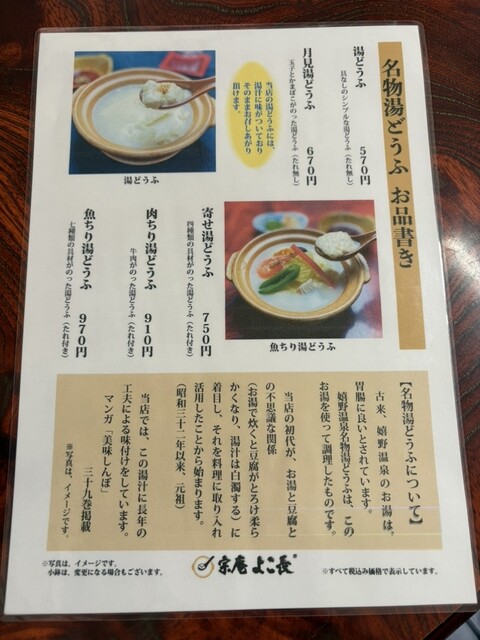 名物湯どうふ お品書き
湯どうふ 570円
具なしのシンプルな湯どうふ(たれ無し)
月見湯どうふ 670円
玉子とかまぼこがのった湯どうふ(たれ無し)
当店の湯どうふには、
湯汁に味がついており
そのままお召しあがり
頂けます。
湯どうふ
寄せ湯どうふ 750円
四種類の具材がのった湯どうふ(たれ付き)
肉ちり湯どうふ 910円
牛肉がのった湯どうふ(たれ付き)
魚ちり湯どうふ 970円
七種類の具材がのった湯どうふ(たれ付き)
魚ちり湯どうふ
【名物湯どうふについて】
古来、嬉野温泉のお湯は、
胃腸に良いとされています。
嬉野温泉名物湯どうふは、この
お湯を使って調理したものです。
当店の初代が、お湯と豆腐と
の不思議な関係
(お湯で炊くと豆腐がとろけ柔ら
かくなり、湯汁は白濁する)に
着目し、それを料理に取り入れ
活用したことから始まります。
(昭和三十二年以来、元祖)
当店では、この湯汁に長年の
工夫による味付けをしています。
マンガ「美味しんぼ」
三十九巻掲載
※写真は、イメージです。
※写真は、イメージです。
小鉢は、変更になる場合もございます。
宗庵 よこ長
※すべて税込み価格で表示しています。